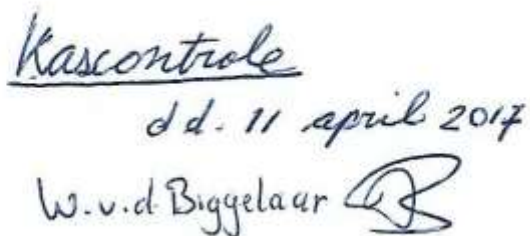 Kascontrole
dd. 11 april 2017
W.v.d Biggelaar